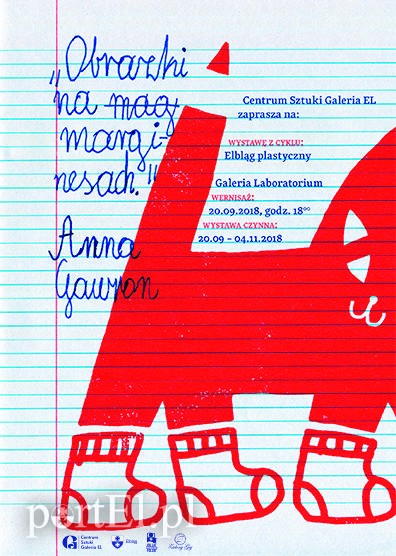 „Obrazki
na mag
margi-
nesach."
Anna
Gawron
Centrum Sztuki Galeria EL
zaprasza na:
WYSTAWĘ Z CYKLU:
Elbląg plastyczny
Galeria Laboratorium
WERNISAŻ:
20.09.2018, godz. 18⁰⁰
WYSTAWA CZYNNA:
20.09 – 04.11.2018
portEl.pl
Centrum
Sztuki
Galeria EL
Elbląg